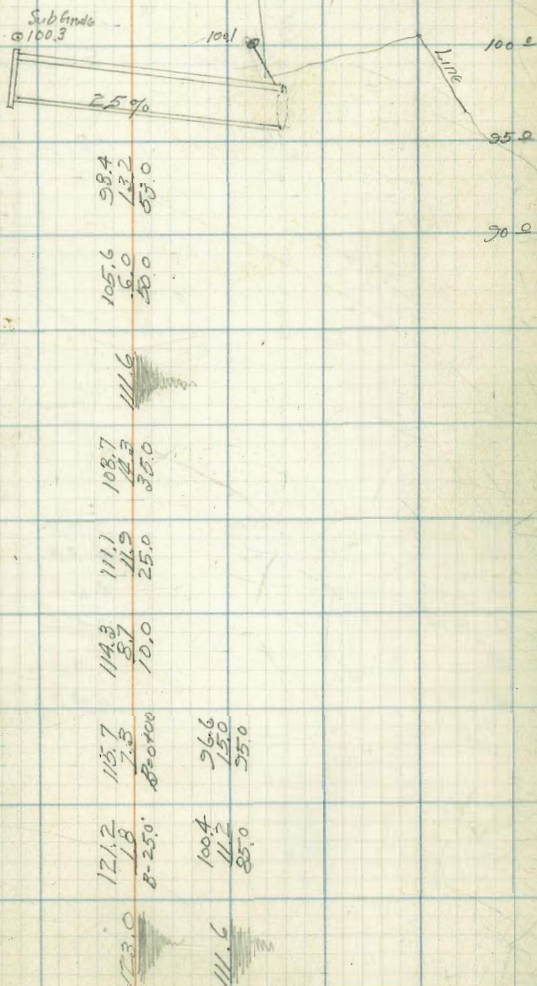 SubGrade
100.3
100.1
100.0
25%
LINE
95.0
90.0
98.4
13.2
105.6
6.0
50.0
111.6
108.7
14.3
35.0
111.1
11.9
25.0
114.3
8.7
10.0
115.7
7.3
B=0+00
96.6
15.0
95.0
121.2
1.8
B-25.0'
100.4
11.2
85.0
123.0
111.6